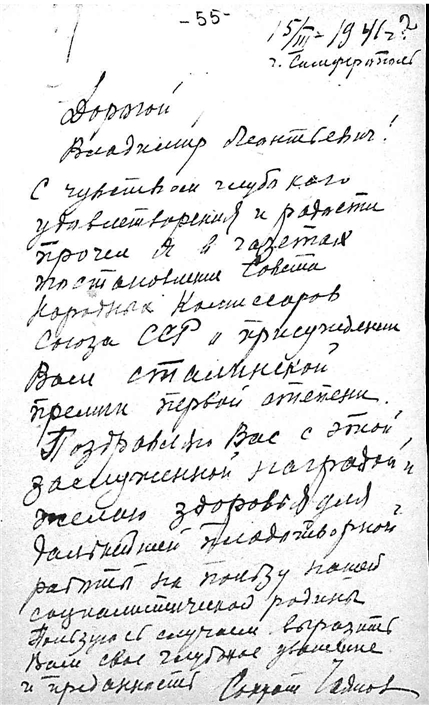 -55-
15/III - 1941 г?
г. Симферополь
Дорогой
Владимир Леонтьевич!
С чувством глубокого
удовлетворения и радости
прочел я в газетах
постановление Совета
Народных Комиссаров
Союза ССР о присуждении
Вам сталинской
премии первой степени.
Поздравляю Вас с этой
заслуженной наградой и
желаю здоровья для
дальнейшей плодотворной
работы на пользу нашей
социалистической родины
Пользуюсь случаем выразить
Вам свое глубокое уважение
и преданность Сократ Чаянов